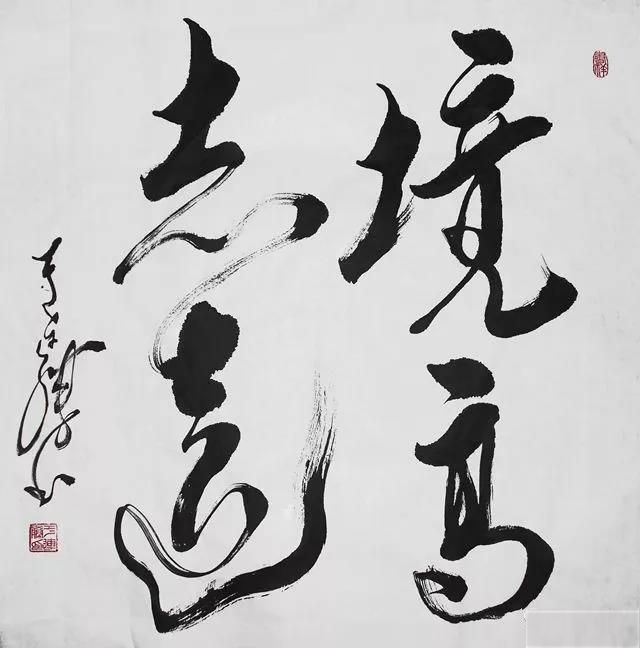 境高
志远